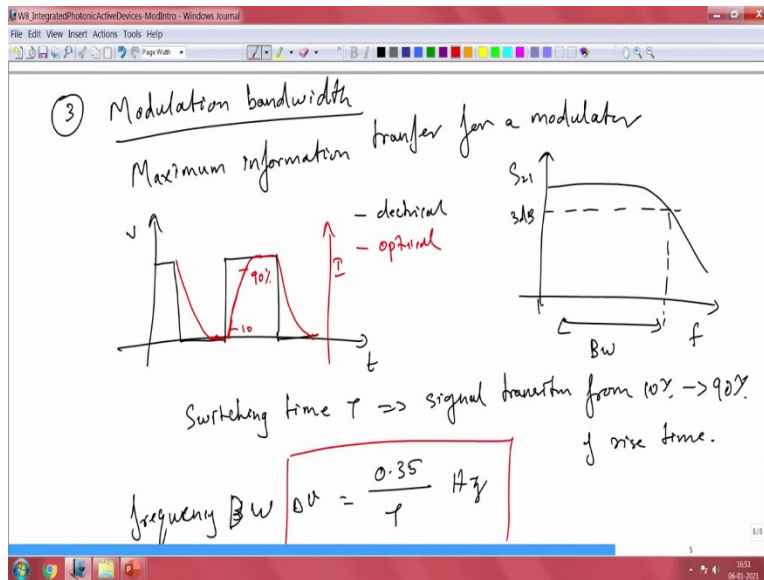 W8_IntegratedPhotonicActiveDevices-ModIntro - Windows Journal
File Edit View Insert Actions Tools Help
Page Width
B I
③ Modulation bandwidth
Maximum information transfer for a modulator
S21
3dB
f
BW
V
I
t
90%
10
- electrical
- optical
Switching time τ => signal transition from 10% -> 90%
of rise time.
frequency BW Δν = 0.35 / τ Hz
5/5
5
16:51
06-01-2021